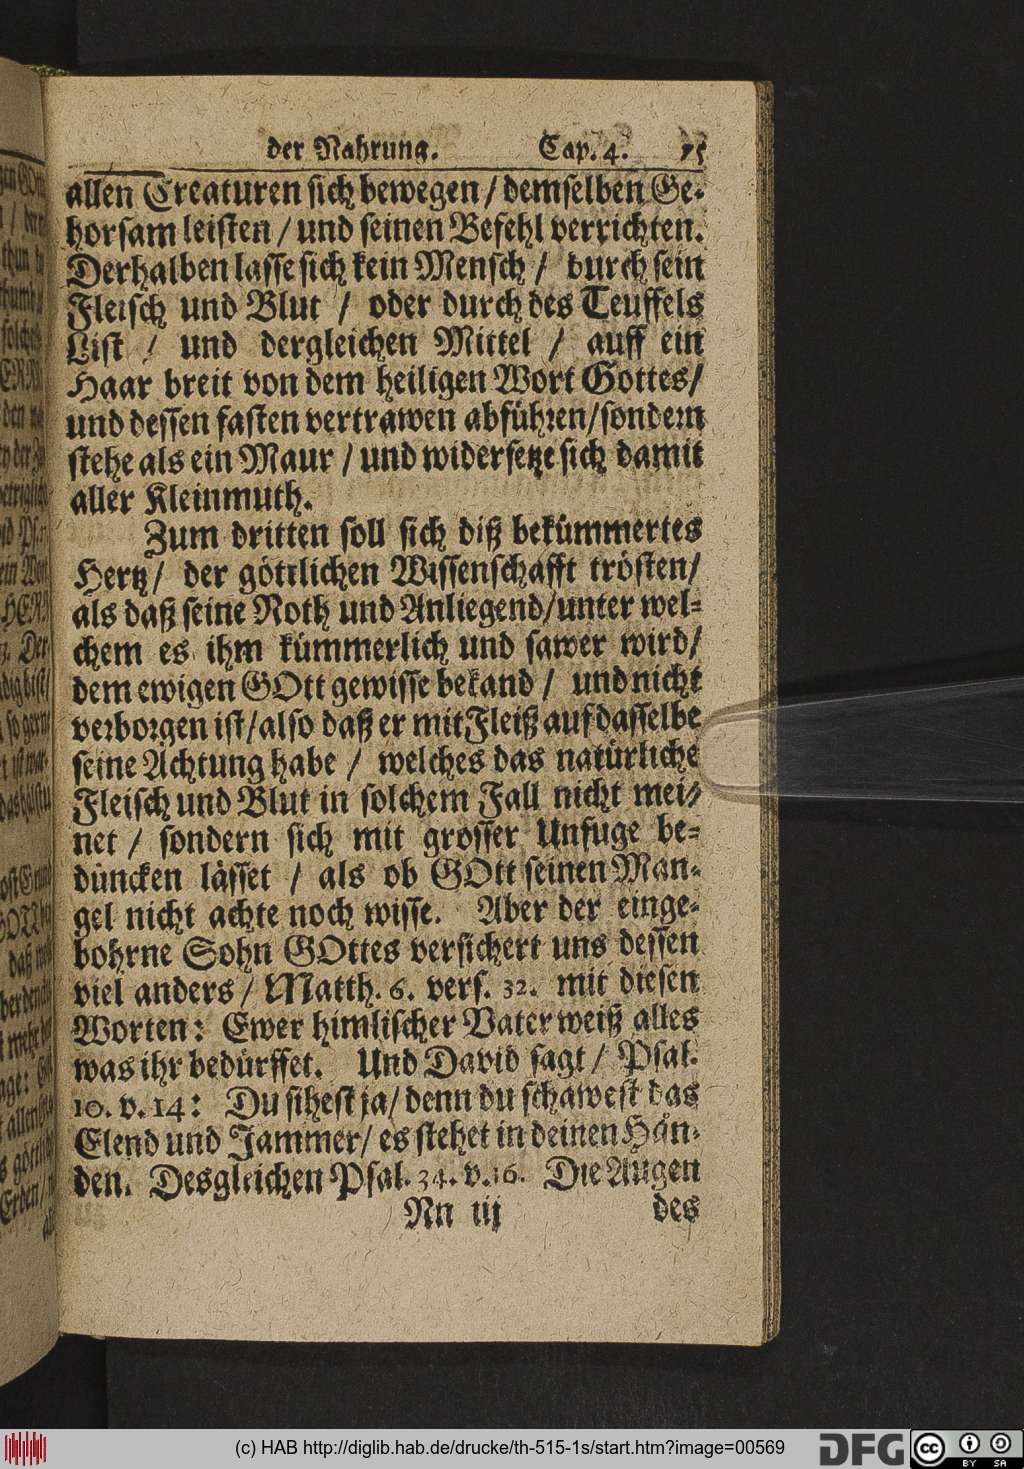 der Nahrung. Cap. 4. 75
allen Creaturen sich bewegen / demselben Ge-
horsam leisten / und seinen Befehl verrichten.
Derhalben lasse sich kein Mensch / durch sein
Fleisch und Blut / oder durch des Teuffels
List / und dergleichen Mittel / auff ein
Haar breit von dem heiligen Wort Gottes/
und dessen fasten vertrawen abführen/sondern
stehe als ein Maur / und widersetze sich damit
aller Kleinmuth.
Zum dritten soll sich diß bekümmertes
Hertz/ der göttlichen Wissenschafft trösten/
als daß seine Noth und Anliegend/unter wel-
chem es ihm kümmerlich und sawer wird/
dem ewigen GOtt gewisse bekand / und nicht
verborgen ist/also daß er mit Fleiß auf dasselbe
seine Achtung habe / welches das natürliche
Fleisch und Blut in solchem Fall nicht mei-
net / sondern sich mit grosser Unfuge be-
düncken lässet / als ob GOtt seinen Man-
gel nicht achte noch wisse. Aber der einge-
bohrne Sohn GOttes versichert uns dessen
viel anders / Matth. 6. vers. 32. mit diesen
Worten: Ewer himlischer Vater weiß alles
was ihr bedürffet. Und David sagt / Psal.
10. v. 14: Du sihest ja/ denn du schawest das
Elend und Jammer/ es stehet in deinen Hän-
den. Desgleichen Psal. 34. v. 16. Die Augen
Nn iij des
(c) HAB http://diglib.hab.de/drucke/th-515-1s/start.htm?image=00569
DFG
cc BY SA